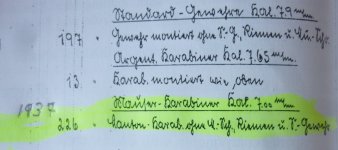 Standard-Gewehre Kal. 7,9 m/m.
197 " Gewehr montiert ohne S.G. Riemen u. Mü.-Sch.
Argent. Karabiner Kal. 7,65 m/m.
13. " Karab. montiert wie oben
1937 Mauser-Karabiner Kal. 7.00 m/m.
226 " Karab. ohne Riemen u.